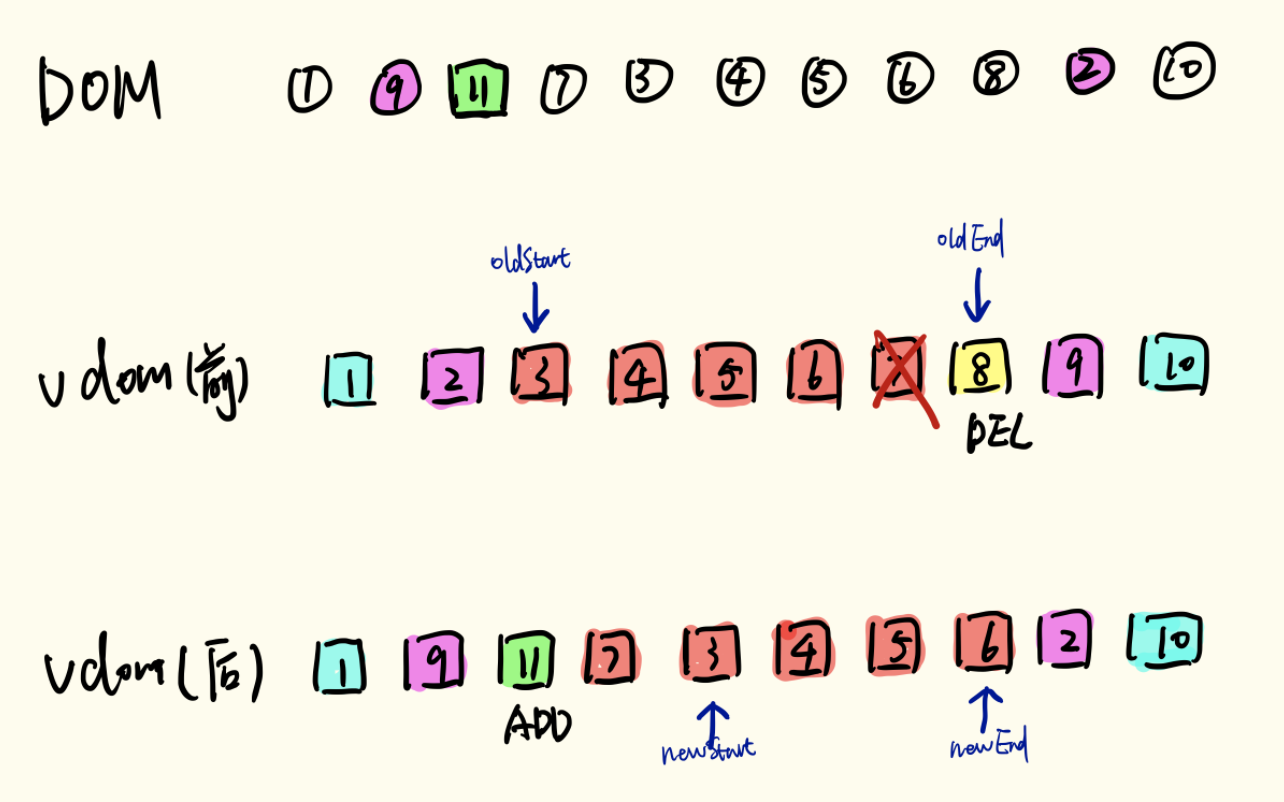 DOM 1 9 11 7 3 4 5 6 8 2 10
oldStart oldEnd
vdom(前) 1 2 3 4 5 6 7 8 9 10
DEL
vdom(后) 1 9 11 7 3 4 5 6 2 10
ADD
newStart newEnd